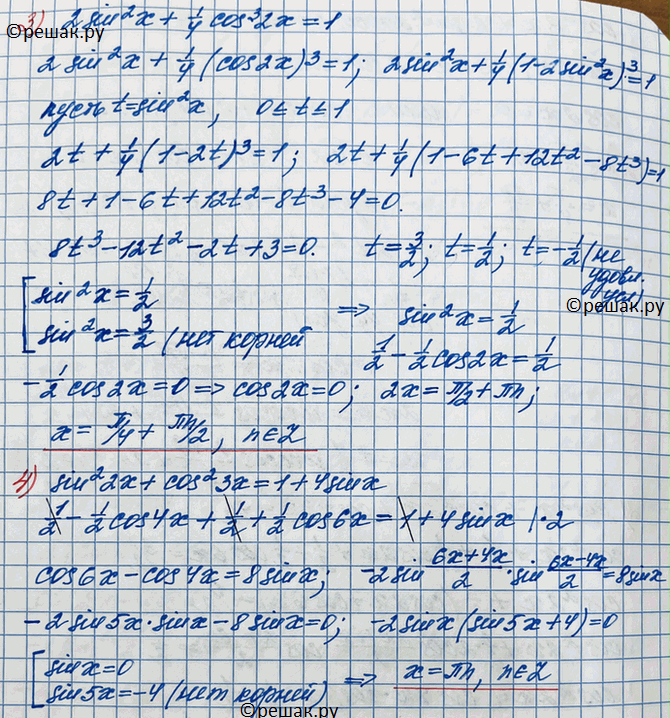 3) 2sin²x + 1/4 cos³2x = 1
©решак.ру
2sin²x + 1/4 (cos2x)³ = 1; 2sin²x + 1/4 (1-2sin²x)³ = 1
пусть t = sin²x, 0 ≤ t ≤ 1
2t + 1/4 (1-2t)³ = 1; 2t + 1/4 (1-6t+12t²-8t³) = 1
8t + 1 - 6t + 12t² - 8t³ - 4 = 0.
8t³ - 12t² - 2t + 3 = 0. t = 3/2; t = 1/2; t = -1/2 (не удовл. усл)
©решак.ру
[ sin²x = 1/2
sin²x = 3/2 (нет корней => sin²x = 1/2
1/2 - 1/2 cos2x = 1/2
- 1/2 cos2x = 0 => cos2x = 0; 2x = π/2 + πn;
x = π/4 + πn/2, n∈Z
4) sin²2x + cos²3x = 1 + 4sinx
1/2 - 1/2 cos4x + 1/2 + 1/2 cos6x = 1 + 4sinx |·2
cos6x - cos4x = 8sinx; -2sin (6x+4x)/2 · sin (6x-4x)/2 = 8sinx
-2sin5x·sinx - 8sinx = 0; -2sinx(sin5x+4) = 0
[ sinx = 0
sin5x = -4 (нет корней) => x = πn, n∈Z
©решак.ру